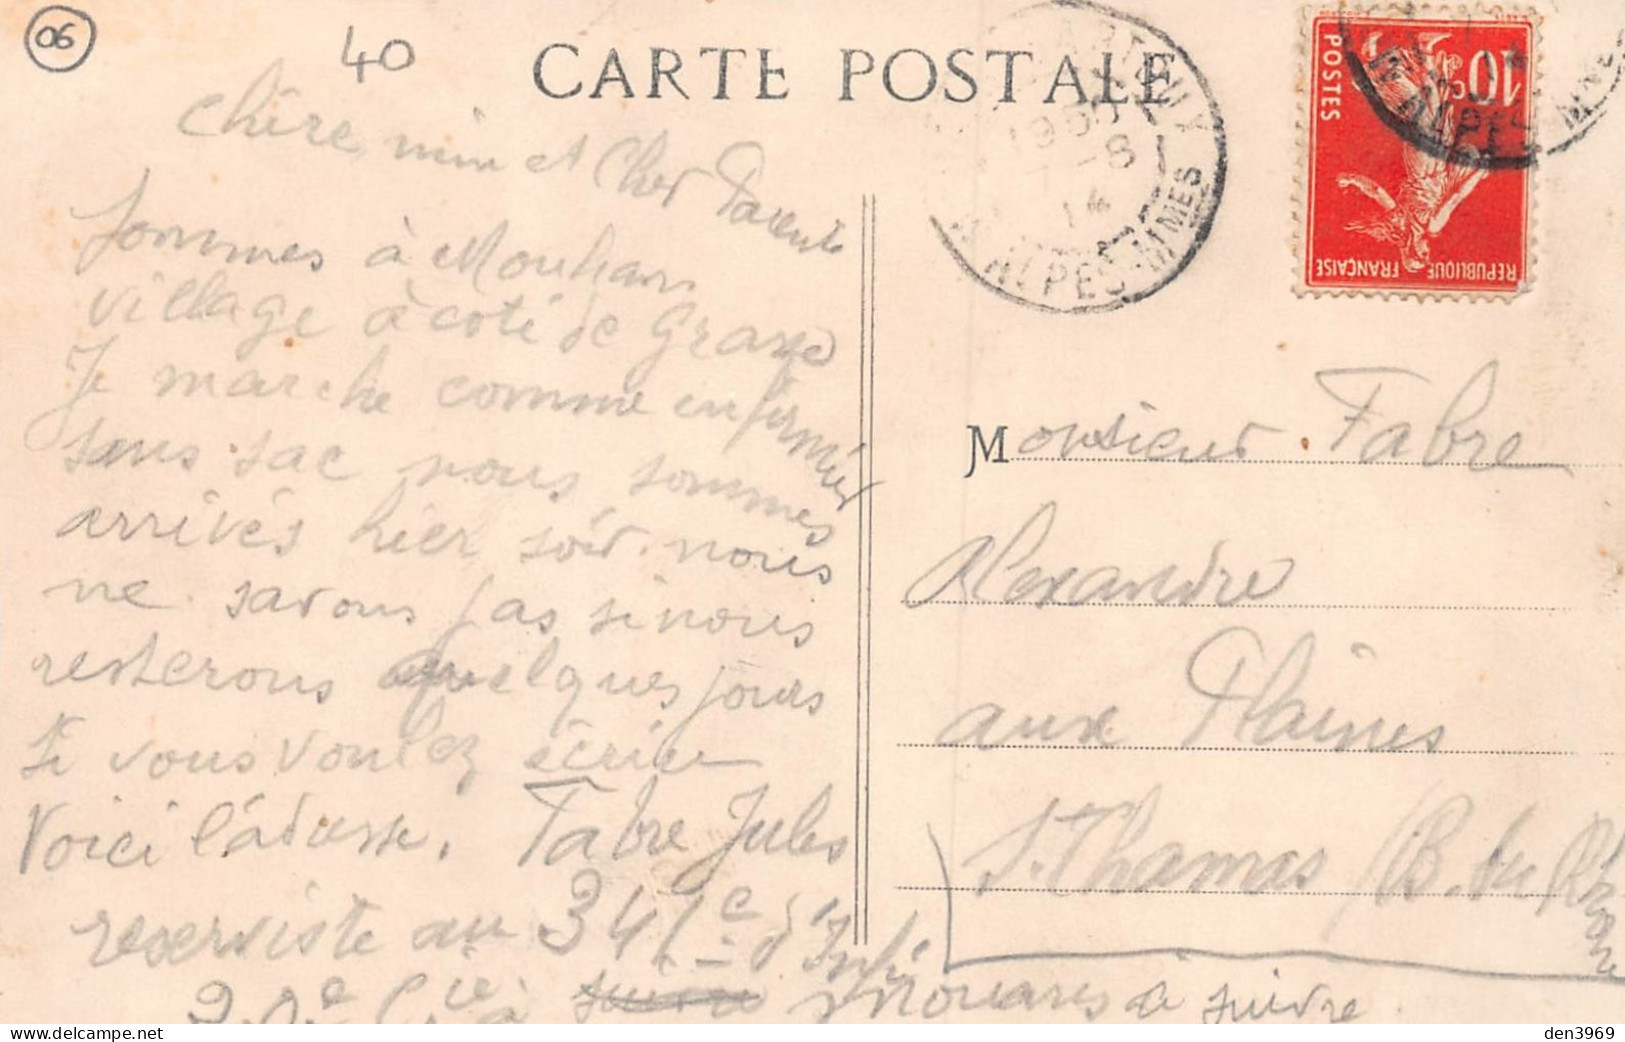 06
40
CARTE POSTALE
chère mimi et Cher Parents
sommes à Mouhans
village à coté de Grasse
Je marche comme enfirmier
sans sac nous sommes
arrivés hier soir. nous
ne savons pas si nous
resterons quelques jours
Si vous voulez écrire
Voici l'adresse. Fabre Jules
reserviste au 341e d'Infie
20e Cie à Mouans à suivre
Monsieur Fabre
Alexandre
aux Plaines
St. Thamas (B. du Rhone
-8
14
ALPES-MMES
10c
POSTES
REPUBLIQUE FRANÇAISE
ALPES MMES
den3969